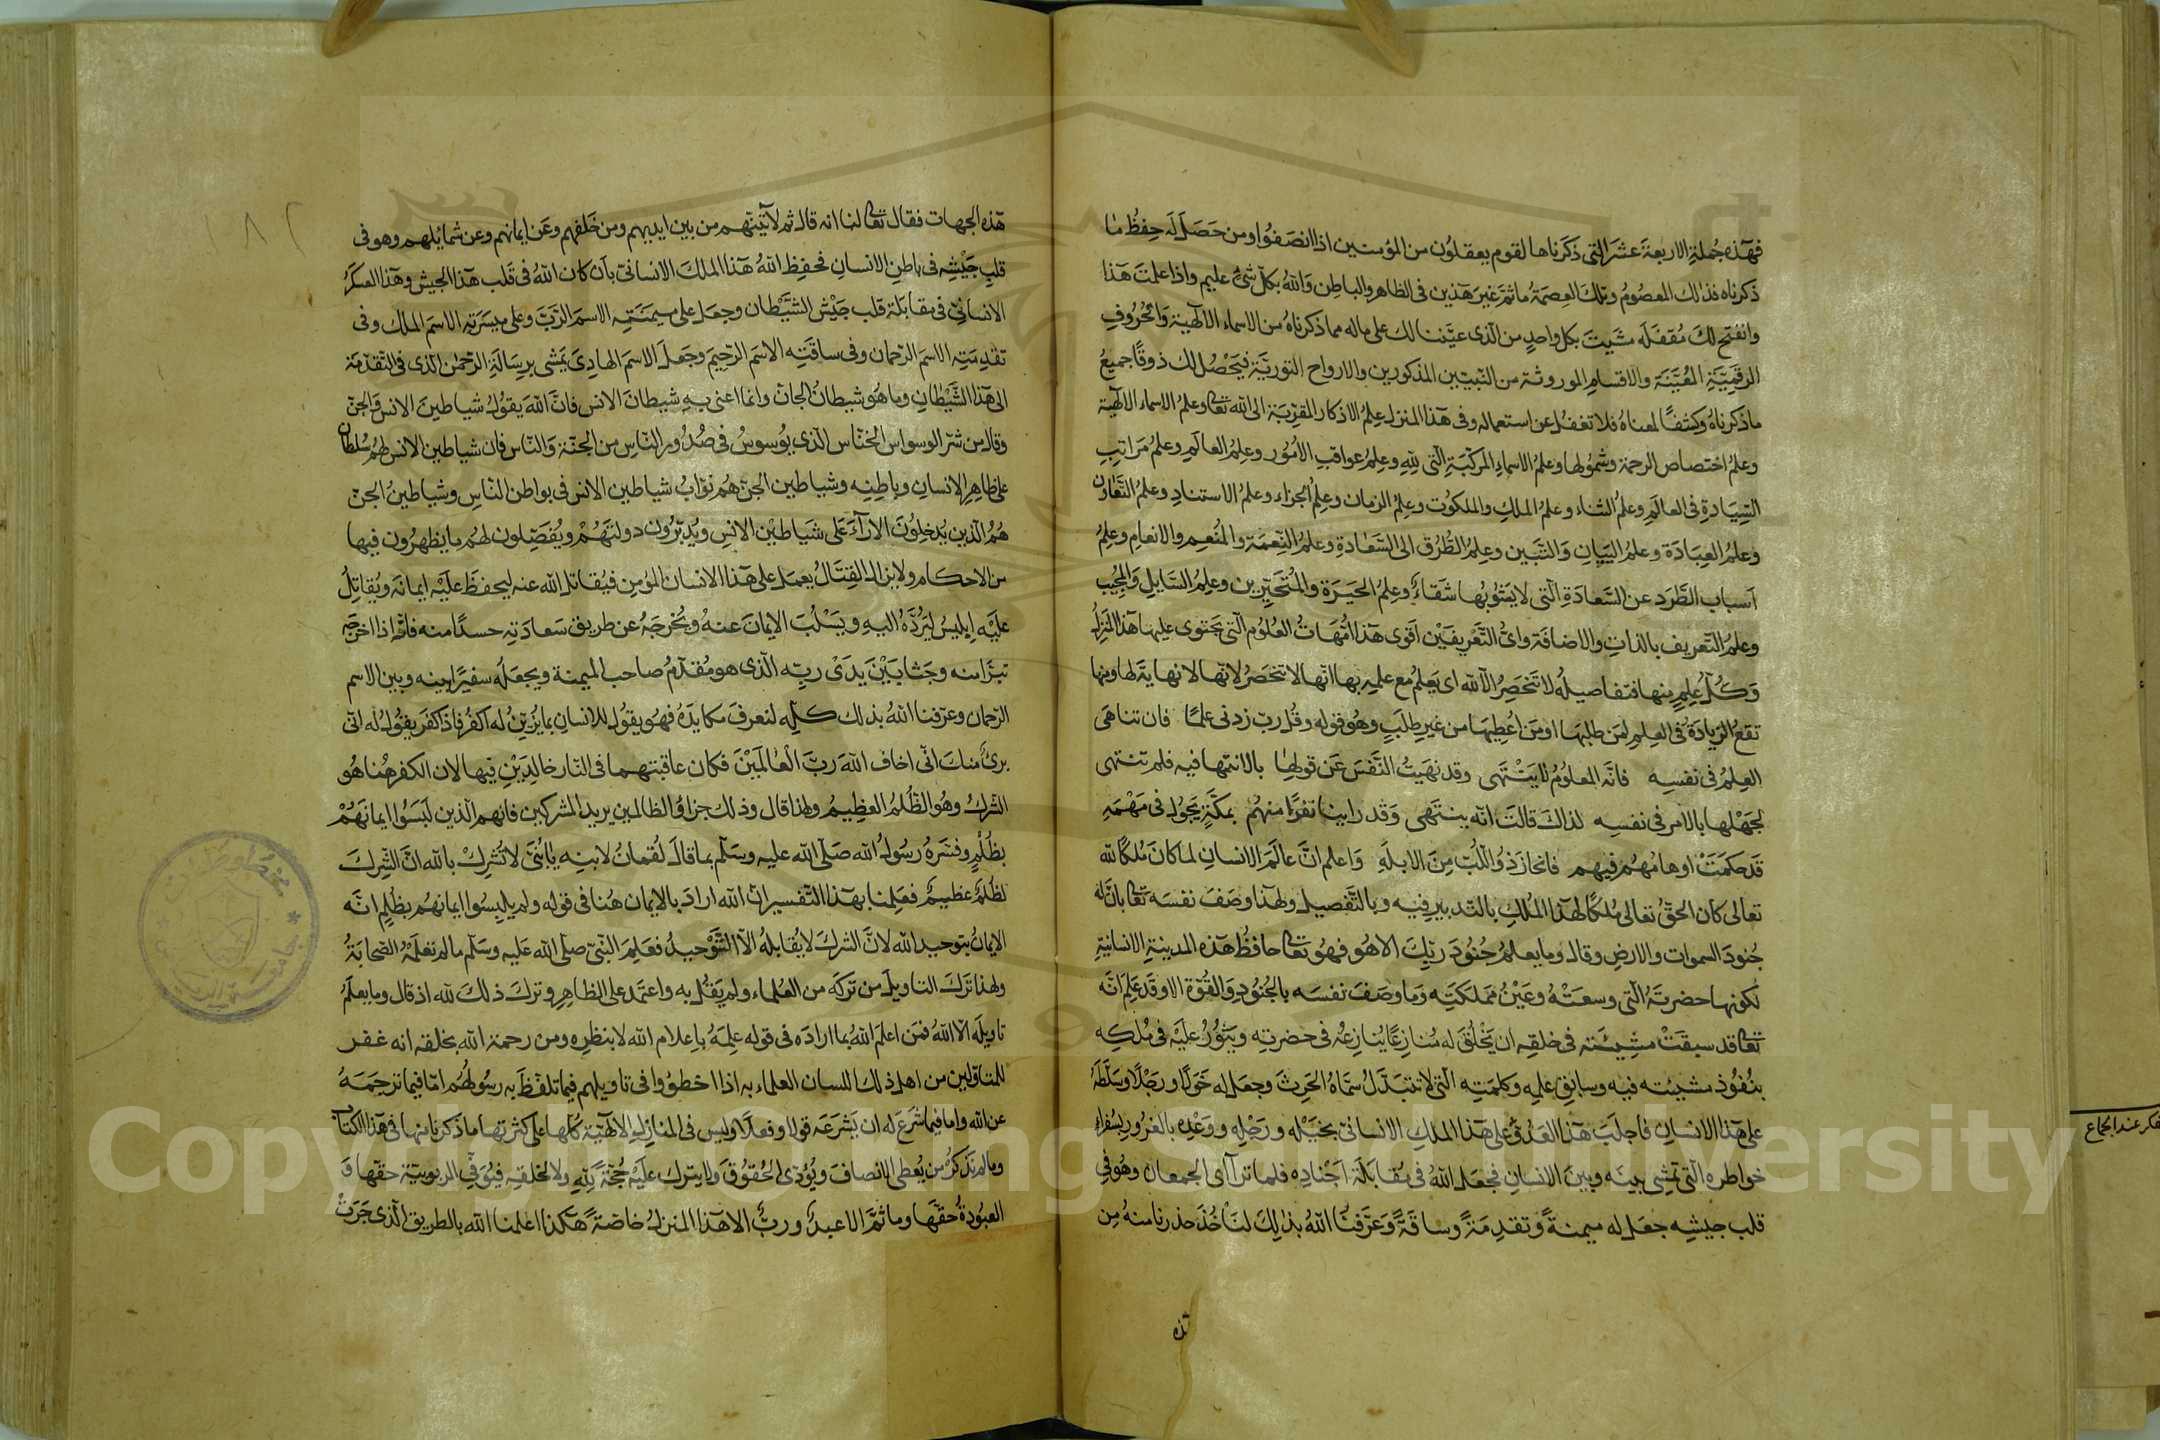 فهذه جملة الاربعة عشر التى ذكرناها لقوم يعقلون من المؤمنين اذا انصفوا ومن حصل له حفظ ما
ذكرناه فذلك المعصوم وتلك العصمة ما ثم غير هذين فى الظاهر والباطن والله بكل شئ عليم واذا علمت هذا
وانفتح لك مقفله مشيت بكل واحد من الذى عيننا لك على ماله مما ذكرناه من الاسماء الالهية والحروف
الرقمية المعينة والاقسام الموروثة من النبيين المذكورين والارواح النورية فيحصل لك ذوقا جميع
ما ذكرناه وكشفا لمعناه فلا تغفل عن استعماله وفى هذا المنزل علم الاذكار المقربة الى الله تعالى وعلم الاسماء الالهية
وعلم اختصاص الرحمة وشمولها وعلم الاسماء المركبة التى لله وعلم عواقب الامور وعلم العالم وعلم مراتب
السيادة فى العالم وعلم الثناء وعلم الملك والملكوت وعلم الزمان وعلم الجزاء وعلم الاستناد وعلم التعاون
وعلم العبادة وعلم البيان والتبين وعلم الطرق الى السعادة وعلم النعمة والمنعم والانعام وعلم
اسباب الطرد عن السعادة التى لا يشوبها شقاء وعلم الحيرة والمتحيرين وعلم السايل والمجيب
وعلم التعريف بالذات والاضافة واى التعريفين اقوى هذا امهات العلوم التى يحتوى عليها هذا المنزل
وكل علم منها فتفاصيله لا تنحصر الا لله اى يعلم مع علمه بها انها لا تنحصر لانها لا نهاية لها ومنها
تقع الزيادة فى العلم لمن طلبها او من اعطيها من غير طلب وهو قوله وقل رب زدنى علما فان تناهى
العلم فى نفسه فانه المعلوم لا ينتهى وقد نهيت النفس عن قولها بالانتها فيه فلم تنتهى
لجهلها بالامر فى نفسه لذاك قالت انه ينتهى وقد راينا نفرا منهم بمكة يجول فى مهمه
قد حكمت اوهامهم فيهم فانحاز ذو اللب من الابله واعلم ان عالم الانسان لما كان ملكا لله
تعالى كان الحق تعالى ملكا لهذا الملك بالتدبير فيه وبالتفصيل ولهذا وصف نفسه تعالى بان له
جنود السموات والارض وقال وما يعلم جنود ربك الا هو فهو تعالى حافظ هذه المدينة الانسانية
لكونها حضرته التى وسعته وعين مملكته وما وصف نفسه بالجنود والقوة الا وقد علم انه
تعالى قد سبقت مشيئته فى خلقه ان يخلق له منازعا ينازعه فى حضرته ويثور عليه فى ملكه
بنفوذ مشيئته فيه وسابق علمه وكلمته التى لا تتبدل سماه الحرث وجعل له خولا ورجلا وسلطه
على هذا الانسان فاجلب هذا العدو على هذا الملك الانسانى بخيله ورجله ووعده بالغرور بسفراء
خواطره التى تمشى بينه وبين الانسان فجعل الله فى مقابلة اجناده فلما ترآاى الجمعان وهو فى
قلب جيشه جعل له ميمنة وتقدمة وساقة وعرفنا الله بذلك لنأخذ حذرنا منه من
هذه
هذه الجهات فقال تعالى لنا انه قال ثم لآتينهم من بين ايديهم ومن خلفهم وعن ايمانهم وعن شمايلهم وهو فى
قلب جيشه فى باطن الانسان فحفظ الله هذا الملك الانسانى بان كان الله فى قلب هذا الجيش وهذا العسكر
الانسانى فى مقابلة قلب جيش الشيطان وجعل على ميمنته الاسم الرب وعلى ميسرته الاسم الملك وفى
تقدمته الاسم الرحمان وفى ساقته الاسم الرحيم وجعل الاسم الهادى يمشى برسالة الرحمن الذى فى التقدمة
الى هذا الشيطان وما هو شيطان الجان وانما اعنى به شيطان الانس فان الله يقول شياطين الانس والجن
وقال من شر الوسواس الخناس الذى يوسوس فى صدور الناس من الجنة والناس فان شياطين الانس لهم سلطان
على ظاهر الانسان وباطنه وشياطين الجن هم نواب شياطين الانس فى بواطن الناس وشياطين الجن
هم الذين يدخلون الارآء على شياطين الانس ويدبرون دولتهم ويفصلون لهم ما يظهرون فيها
من الاحكام ولا يزال القتال يعمل على هذا الانسان المؤمن فيقاتل الله عنه ليحفظ عليه ايمانه ويقاتل
عليه ابليس ليرده اليه ويسلب الايمان عنه ويخرجه عن طريق سعادته حسدا منه فانه اذا اخرجه
تبرا منه وجثا بين يدى ربه الذى هو مقدم صاحب الميمنة ويجعله سفيرا بينه وبين الاسم
الرحمان وعرفنا الله بذلك كله لنعرف مكايده فهو يقول للانسان بما يزين له اكفر فاذا كفر يقول له انى
برئ منك انى اخاف الله رب العالمين فكان عاقبتهما فى النار خالدين فيها لان الكفر هنا هو
الشرك وهو الظلم العظيم ولهذا قال وذلك جزاؤ الظالمين يريد المشركين فانهم الذين لبسوا ايمانهم
بظلم وفسره رسول الله صلى الله عليه وسلم بما قال لقمان لابنه يا بنى لا تشرك بالله ان الشرك
لظلم عظيم فعلمنا بهذا التفسير ان الله اراد بالايمان هنا فى قوله ولم يلبسوا ايمانهم بظلم انه
الايمان بتوحيد الله لان الشرك لا يقابله الا التوحيد فعلم النبى صلى الله عليه وسلم ما لم تعلمه الصحابة
ولهذا ترك التاويل من تركه من العلماء ولم يقل به واعتمد على الظاهر وترك ذلك لله اذ قال وما يعلم
تاويله الا الله فمن اعلم الله بما اراده فى قوله علمه باعلام الله لا بنظره ومن رحمة الله بخلقه انه غفر
للمتاولين من اهل ذلك اللسان العلماء به اذا اخطؤا فى تاويلهم فيما تلفظ به رسولهم اما فيما ترجمه
عن الله واما فيما شرع له ان يشرعه قولا وفعلا وليس فى المنازل الالهية كلها على كثرتها ما ذكرنا منها فى هذا الكتاب
وما لم نذكر من يعطى الانصاف ويؤدى الحقوق ولا يترك عليه حجة لله ولا لخلقه فيوفى الربوبية حقها و
العبودة حقها وما ثم الا عبد ورب الا هذا المنزل خاصة هكذا اعلمنا الله بالطريق الذى جرت
فكر عند الجماع
Copyright © King Saud University